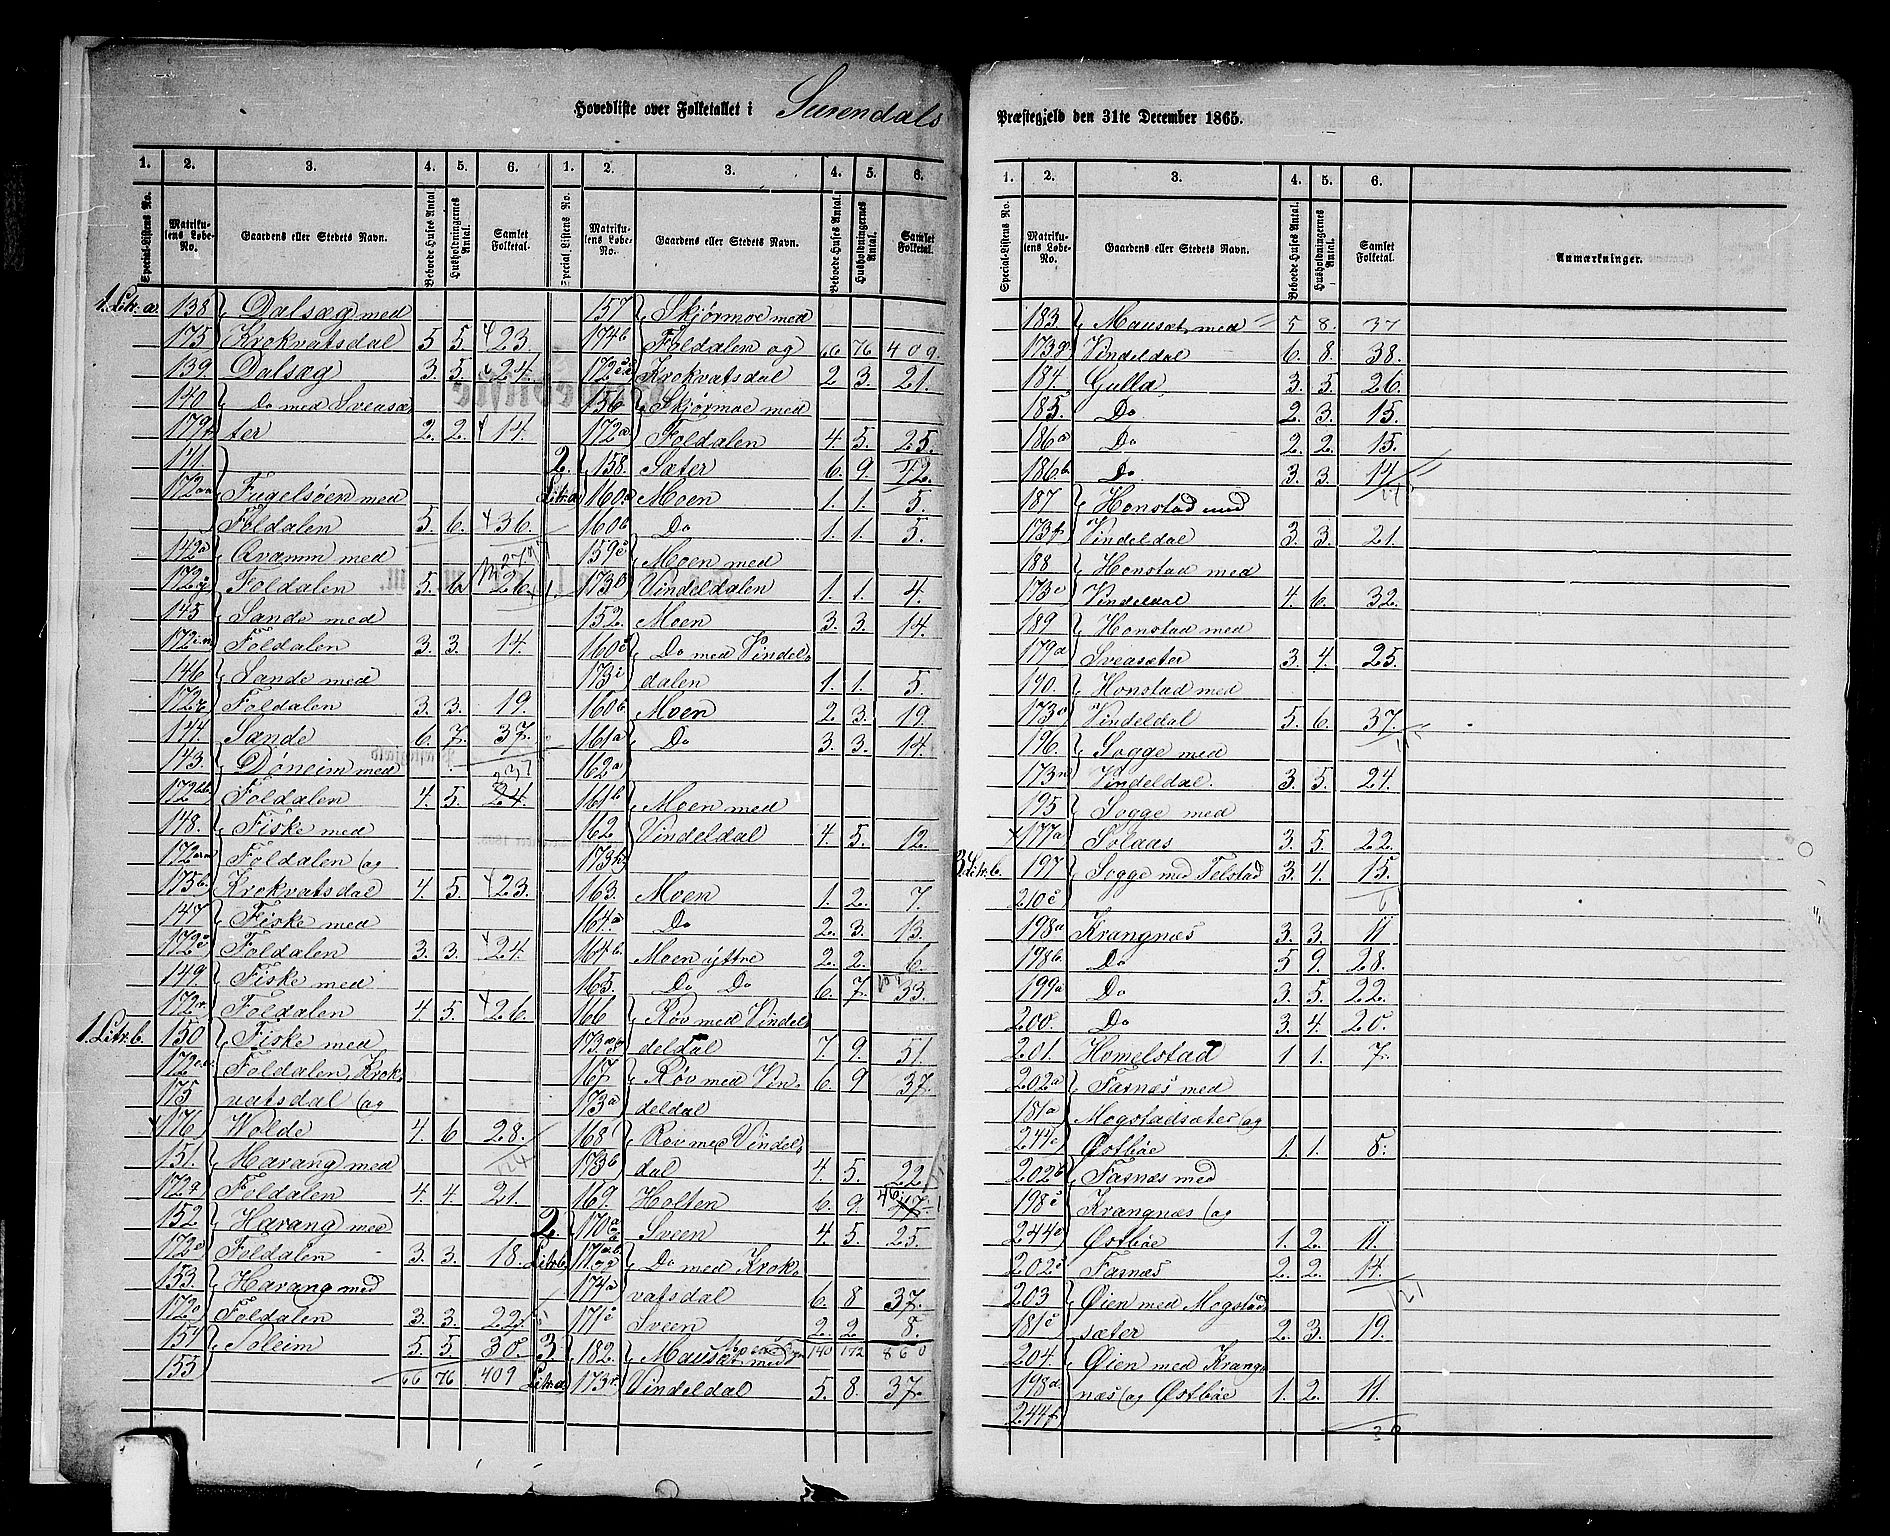 Hovedliste over Folketallet i Surendals
Præstegjeld den 31te December 1865.
1. 2. 3. 4. 5. 6. 1. 2. 3. 4. 5. 6.
Special-Listens No. Matrikulens Løbe-No. Gaardens eller Stedets Navn. Beboede Huses Antal Husholdningernes Antal. Samlet Folketal.
Special-Listens No. Matrikulens Løbe-No. Gaardens eller Stedets Navn. Beboede Huses Antal. Husholdningernes Antal. Samlet Folketal.
1. Litr. a. 138 Dalsæg med
175 Krokvatsdal 5 5 23.
139 Dalsæg 3. 5. 24.
140 Do med Sveasæ
179 ter 2. 2. 14.
141
172 Fugelsøen med
Foldalen 5. 6. 36.
142a Qvamm med
172 Foldalen 5. 6. 26.
145 Sande med
172 Foldalen 3. 3. 14.
146 Sande med
172 Foldalen 3. 3. 19.
144 Sande 6. 7. 37.
143. Døneim med 237
172 Foldalen 4. 5. 24.
148. Fiske med
172 Foldalen og
175b. Krokvatsdal 4. 5. 23.
147 Fiske med
172 Foldalen 3. 3. 24.
149. Fiske med
172 Foldalen 4 5. 26.
1. Litr. b. 150 Fiske med
172 Foldalen, Krok-
175 vatsdal og
176 Wolde 4. 6 28.
124
151. Harang med
172 Foldalen 4. 4. 21.
152 Harang med
172 Foldalen 3. 3. 18.
153. Harang med
172 Foldalen 3. 3. 22.
154 Soleim 5. 5. 30.
155 66 76 409
157 Skjørmoe med
174b Foldalen og 66 76 409.
172 Krokvatsdal 2 3. 21.
156 Skjørmoe med
172a Foldalen 4. 5. 25.
2. 158. Sæter 6. 9. 42.
Litr. a 160a Moen 1. 1. 5.
160b Do 1. 1. 5.
159 Moen med
173 Vindeldalen 1. 1. 4.
152. Moen 3. 3. 14.
160c Do med Vindel-
173i dalen 1. 1. 5.
160b Moen 2 3. 19.
161a Do 3. 3. 14.
162a
161b Moen med
162 Vindeldal 4. 5. 12.
173
163. Moen 1. 2. 7.
164.a Do 2. 3. 13.
164b. Moen ýttre 2. 2. 6.
165. Do Do 6. 7. 33.
166 Røv med Vindel
173 deldal 7. 9. 51.
167 Røv med Vin- 6. 9 37.
173a deldal
168 Røv med Vindel-
173b dal 4. 5. 22
169. Holten 6. 9. 46 47.
2. 170a Sveen 4. 5. 25.
Litr. b. 171 Do med Krok-
174a vatsdal 6. 8 37.
171c Sveen 2. 2. 8.
140 172 860
3. 182. Mausæt med
Litr. a 173 Vindeldal 5. 8. 37.
1. 2. 3. 4. 5. 6.
Special-Listens No. Matrikulens Løbe-No. Gaardens eller Stedets Navn. Beboede Huses Antal. Husholdningernes Antal. Samlet Folketal. Anmærkninger.
183. Mausæt med 5 8. 37
173g Vindeldal 6. 8. 38.
184. Gulla 3. 5. 26.
185. Do 2. 3. 15.
186a Do 2. 2. 15.
186b. Do 3. 3. 14
187 Honstad med
173 Vindeldal 3. 3. 21.
188 Honstad med
173c Vindeldal 4. 6. 32.
189 Honstad med
179a Sveasæter 3. 4. 25.
190. Honstad med
173 Vindeldal 5. 6. 37.
196. Sogge med
173n Vindeldal. 3. 5. 24.
195 Sogge med
177a Solaas 3. 5. 22.
3 Litr. b. 197 Sogge med Telstad 3. 4. 15.
210c
198a Krangnæs 3. 3. 11
198b. Do 5 9. 28.
199a Do 3. 5. 22.
200. Do 3. 4. 20.
201. Homelstad 1 1. 7.
202a Farnæs med
181a Mogstadsæter og
244c Østbøe 1. 1. 8.
202b Farnæs med
198c Krangnæs og
244 Østbøe 1. 2. 11.
202c Farnæs 2. 2. 14.
121
203 Øien med Mogstad
181c sæter 2. 3. 19.
204. Øien med Krang-
198d. næs og Østbøe 1. 2. 11.
244f
30